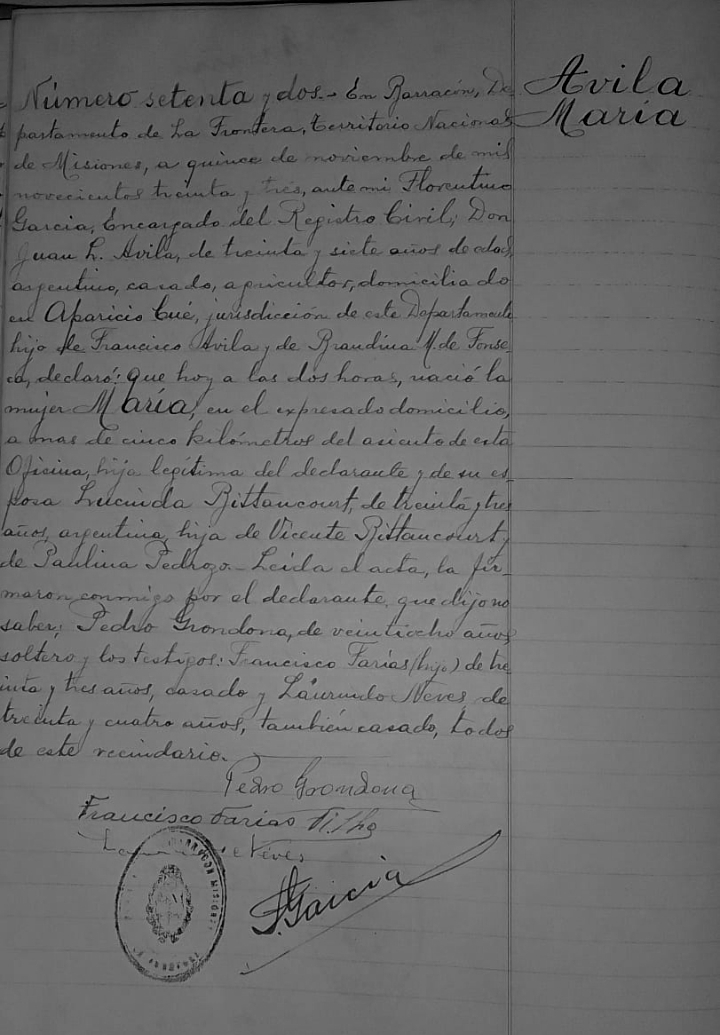 Avila
María
Número setenta y dos.- En Barracón, De
partamento de La Frontera, territorio Nacional
de Misiones, a quince de noviembre de mil
novecientos treinta y trés, ante mi Florentino
Garcia, Encargado del Registro Civil; Don
Juan L. Avila, de treinta y siete años de edad,
argentino, casado, agricultor, domiciliado
en Aparicio Cué, jurisdicción de este Departamento
hijo de Francisco Avila y de Brandina M. de Fonse-
ca, declaró: Que hoy a las dos horas, nació la
mujer María, en el expresado domicilio,
a mas de cinco kilómetros del asiento de esta
Oficina, hija legítima del declarante y de su es-
posa Lucinda Bittancourt, de treinta y tres
años, argentina, hija de Vicente Bittancourt y
de Paulina Pedrozo.- Leida el acta, la fir-
maron conmigo por el declarante que dijo no
saber; Pedro Grondona, de veintiocho años,
soltero y los testigos: Francisco Farías (hijo) de tre
inta y tres años, casado y Laurindo Neves, de
treinta y cuatro años, también casado, todos
de este vecindario.
Pedro Grondona
Francisco Farias Filho
Neves
F. Garcia